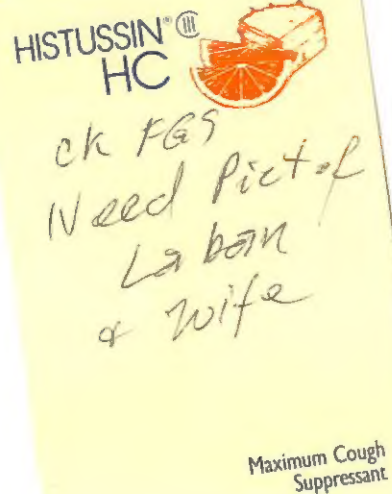 HISTUSSIN® CIII
HC
ck FGS
Need Pict of
Laban
& Wife
Maximum Cough
Suppressant